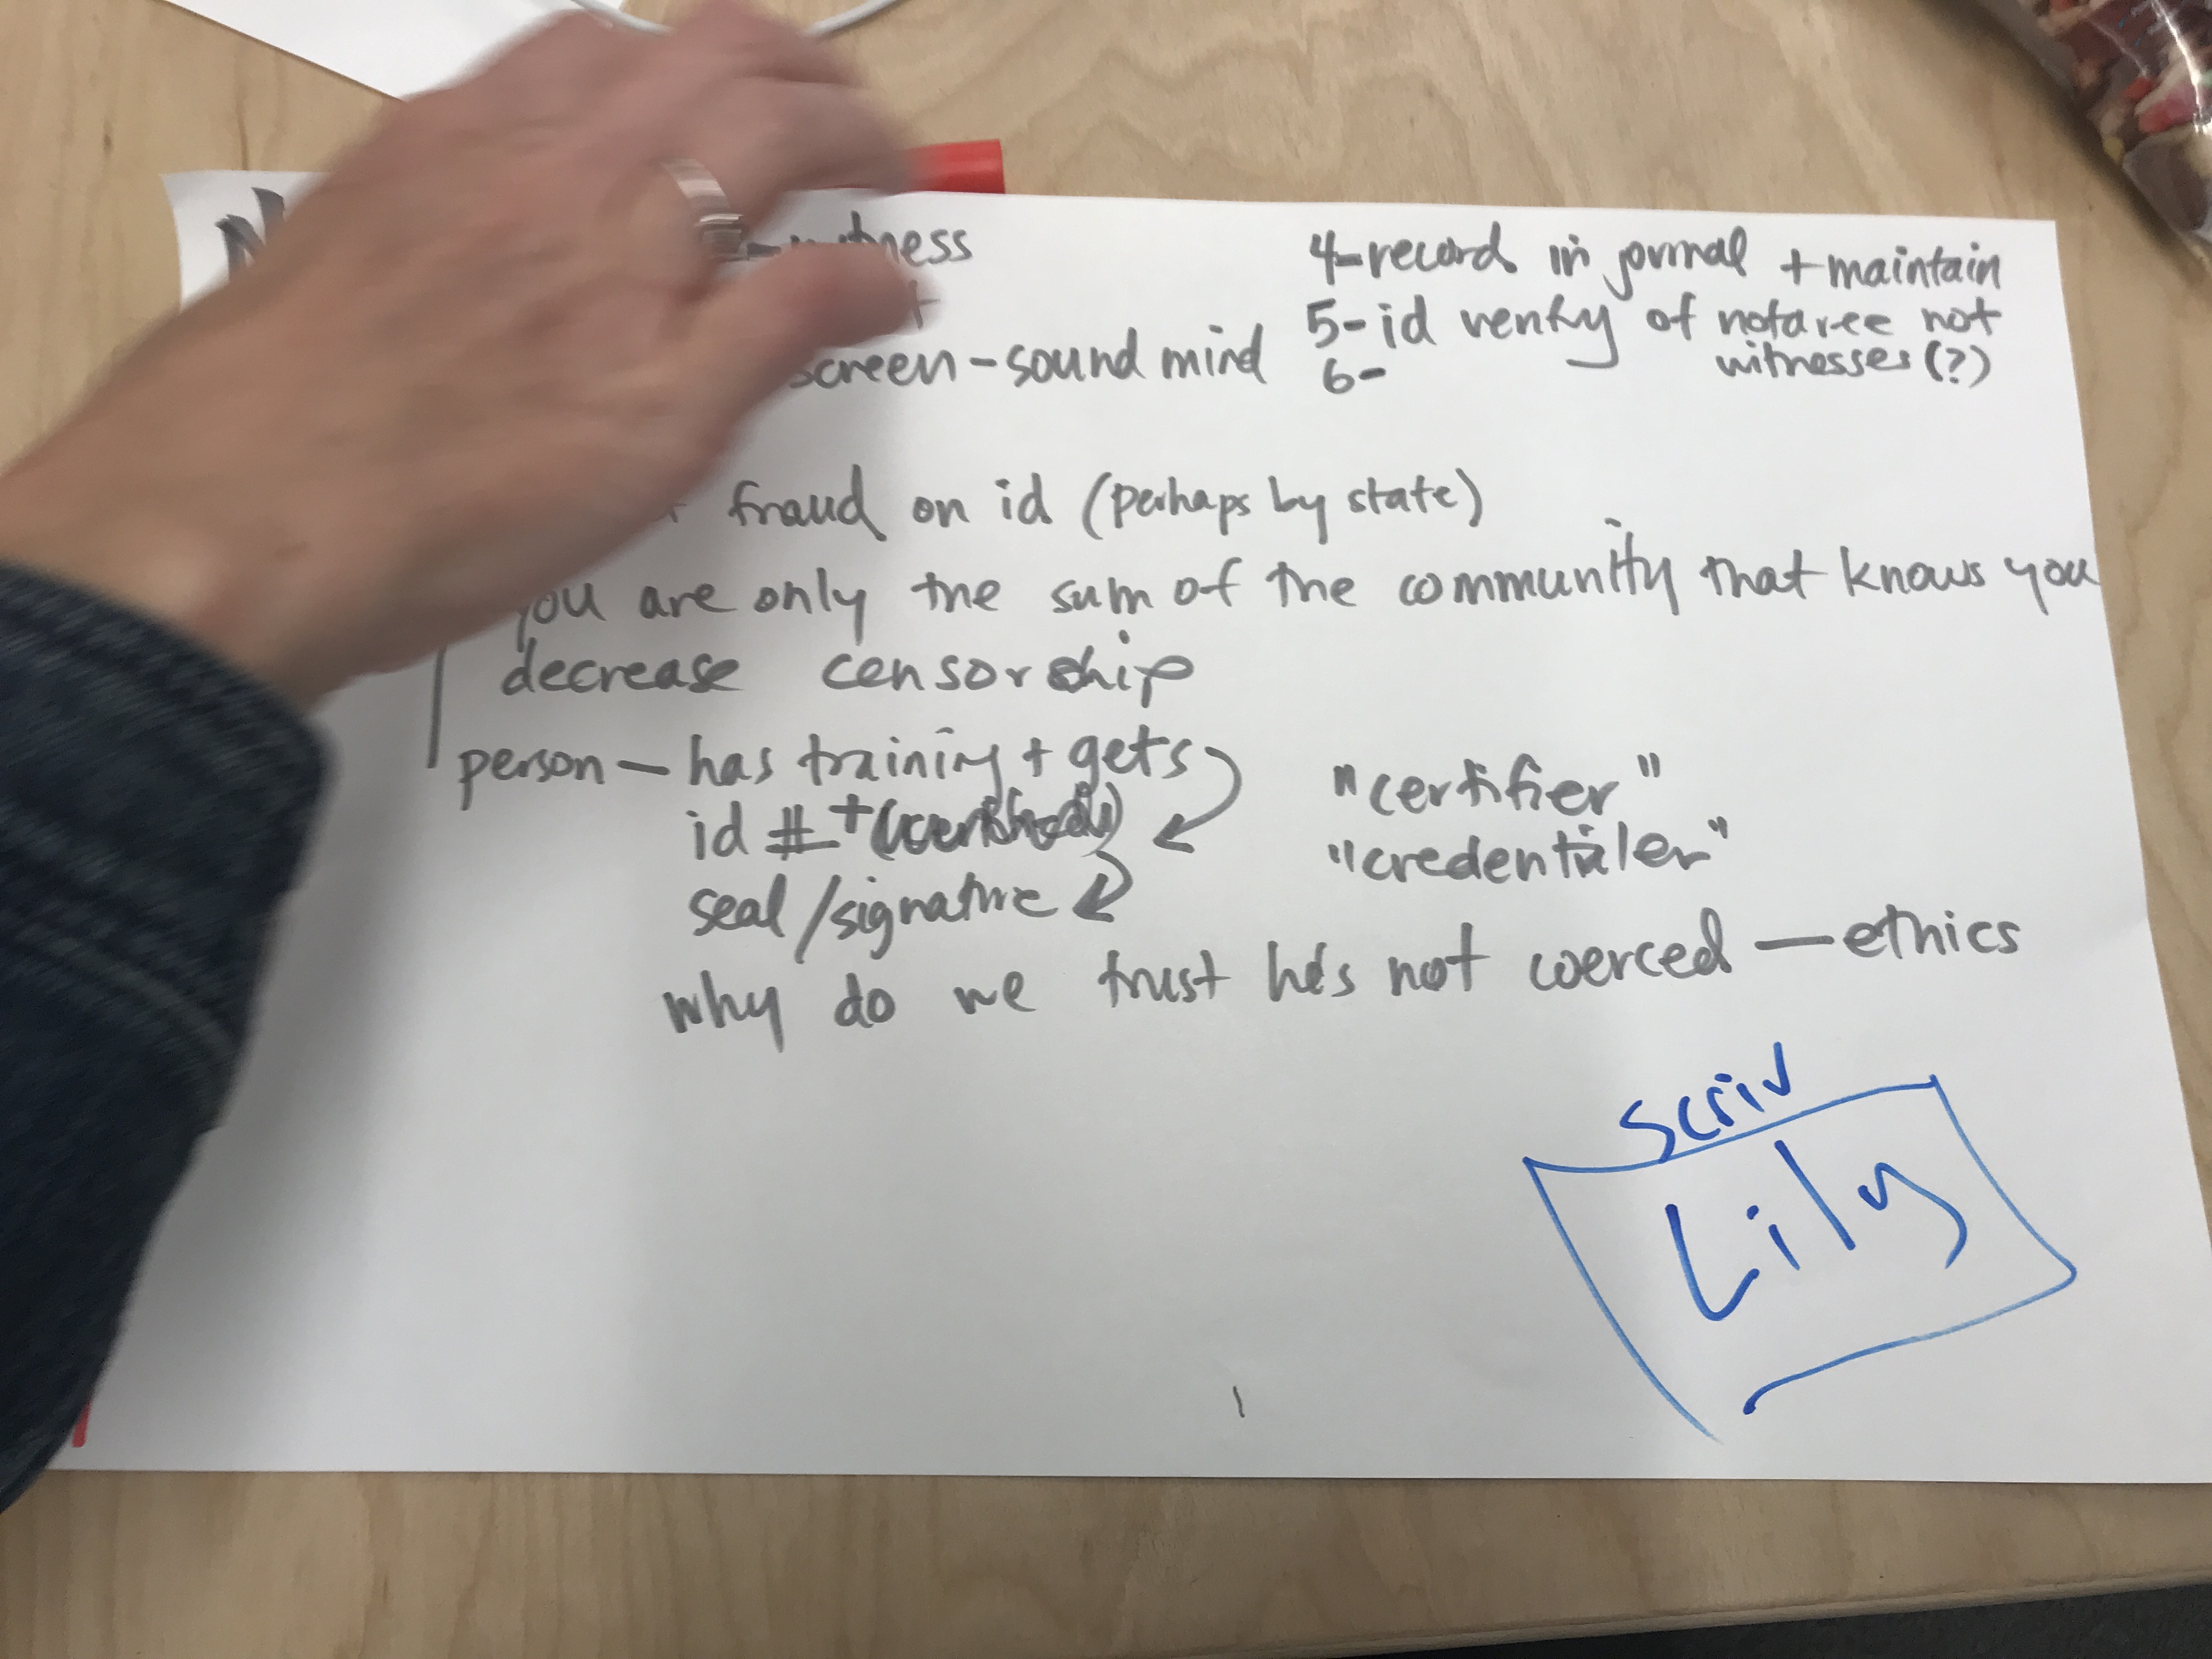 4-record in journal + maintain
5-id verify of notaree not
witnesses(?)
6-
screen-sound mind
fraud on id (perhaps by state)
you are only the sum of the community that knows you
decrease censorship
person - has training + gets
id # +
seal/signature
"certifier"
"credentialer"
why do we trust he's not coerced - ethics
scriv
Lily